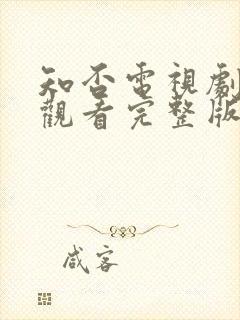 知否電視劇
觀看完整版
咸客